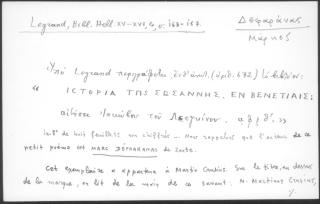 Legrand, Bibl. Hell. XV-XVI, 4, σ. 163-167.
Δεφαράνας
Μάρκος
Ὑπὸ Legrand περιγράφεται (ἀριθ. 672)
« ΙΣΤΟΡΙΑ ΤΗΣ ΣΩΣΑΝΝΗΣ, ΕΝ ΒΕΝΕΤΙΑΙΣ;
Ἰακώβου τοῦ Λεογκίνου. α φ ξ θ´. »
in-8° de huit feuillets non chiffrés — Nous rappelons que l'auteur de ce
petit poème est MARC DÉPHARANAS de Zante.
Cet exemplaire a appartenu à Martin Crusius. Sur le titre, au dessous
de la marque, on lit de la main de ce savant. M. Martinus Crusius,